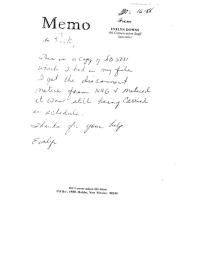 Memo
From
EVELYN DOWNS
Oil Conservation Staff
Specialist
To
This is a copy of
which I had in my file
I got the disconnect
notice from NNG & noticed
it was still being carried
on schedule.
Thanks for your help
Evelyn
Oil Conservation Division
P.O. Box 1980, Hobbs, New Mexico 88240